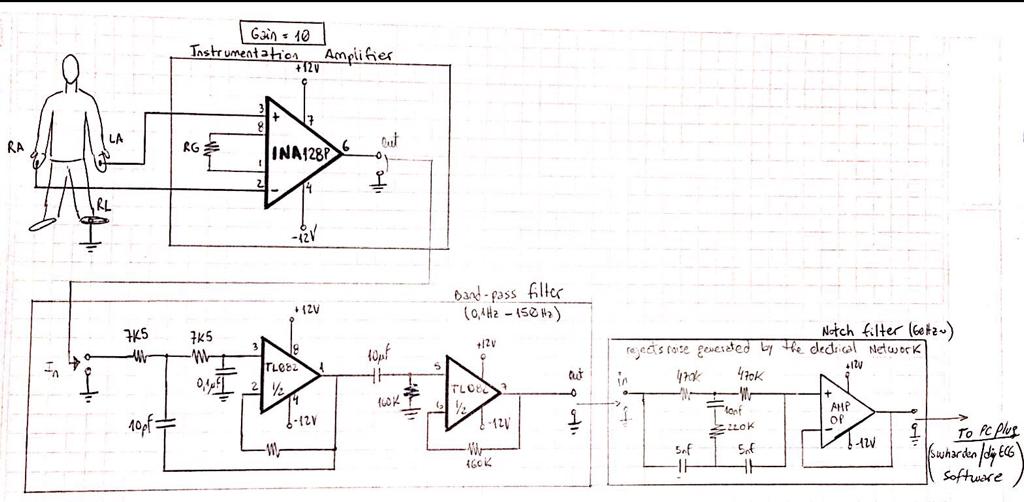 Gain = 10
Instrumentation Amplifier
+12V
3
+
7
8
RA
LA
RG
INA128P
6
out
1
2
-
4
RL
-12V
Band-pass filter
(0,1Hz - 150Hz)
+12V
7K5
7K5
3
8
In
0,1µf
TL082
1/2
1
2
4
-12V
10µf
10µf
160K
+12V
5
TL082
1/2
7
6
-12V
160K
out
Notch filter (60Hz~)
rejects noise generated by the electrical Network
in
470K
470K
+12V
10nf
220K
+
AMP
OP
-
-12V
5nf
5nf
To PC plug
(swharden/diyECG
software)